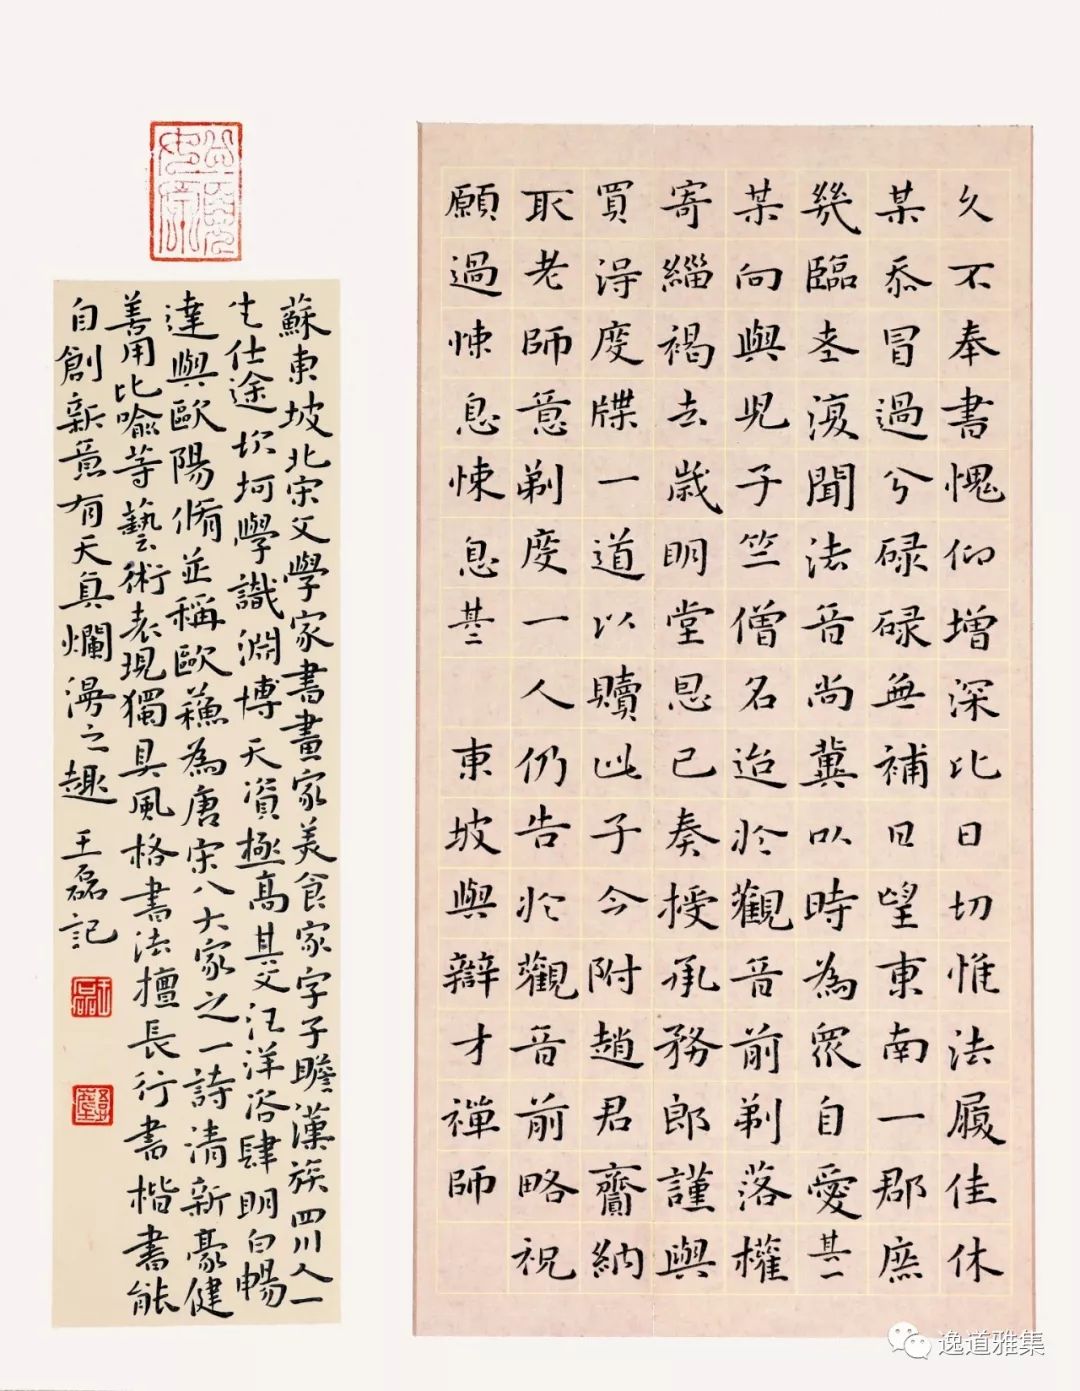 久不奉書愧仰增深比日切惟法履佳休
某忝冒過兮碌碌無補日望東南一郡庶
幾臨老復聞法音尚冀以時為眾自愛其一
某向與兒子竺僧名迨於觀音前剃落權
寄緇褐去歲明堂恩已奏授承務郎謹與
買得度牒一道以贖此子今附趙君齎納
取老師意剃度一人仍告於觀音前略祝
願過悚息悚息其二 東坡與辯才禪師
蘇東坡北宋文學家書畫家美食家字子瞻漢族四川人一
生仕途坎坷學識淵博天資極高其文汪洋浴肆明白暢
達與歐陽脩並稱歐蘇為唐宋八大家之一詩清新豪健
善用比喻等藝術表現獨具風格書法擅長行書楷書能
自創新意有天真爛漫之趣 王磊記
王磊
逸道雅集